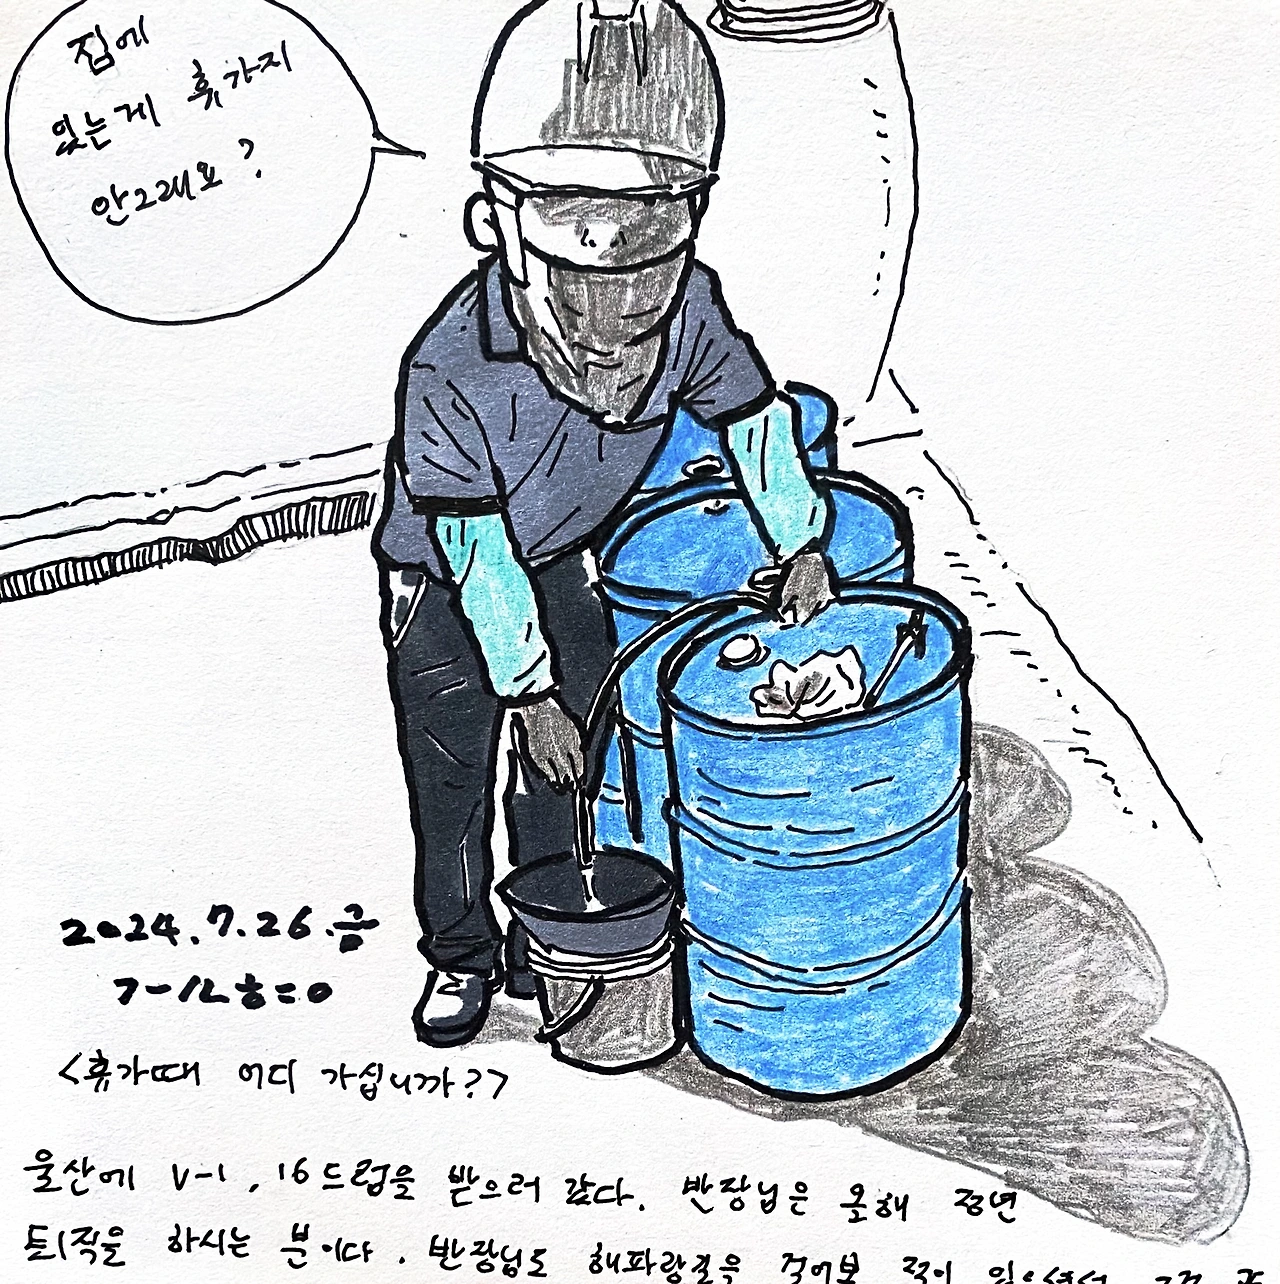 집에
있는게 휴가지
안그래요?
2024.7.26.금
<휴가때 어디 가십니까?>
울산에 V-1, 16드럼을 받으러 갔다. 반장님은 올해 정년
퇴직을 하시는 분이다. 반장님도 해파랑길을 걸어본 적이